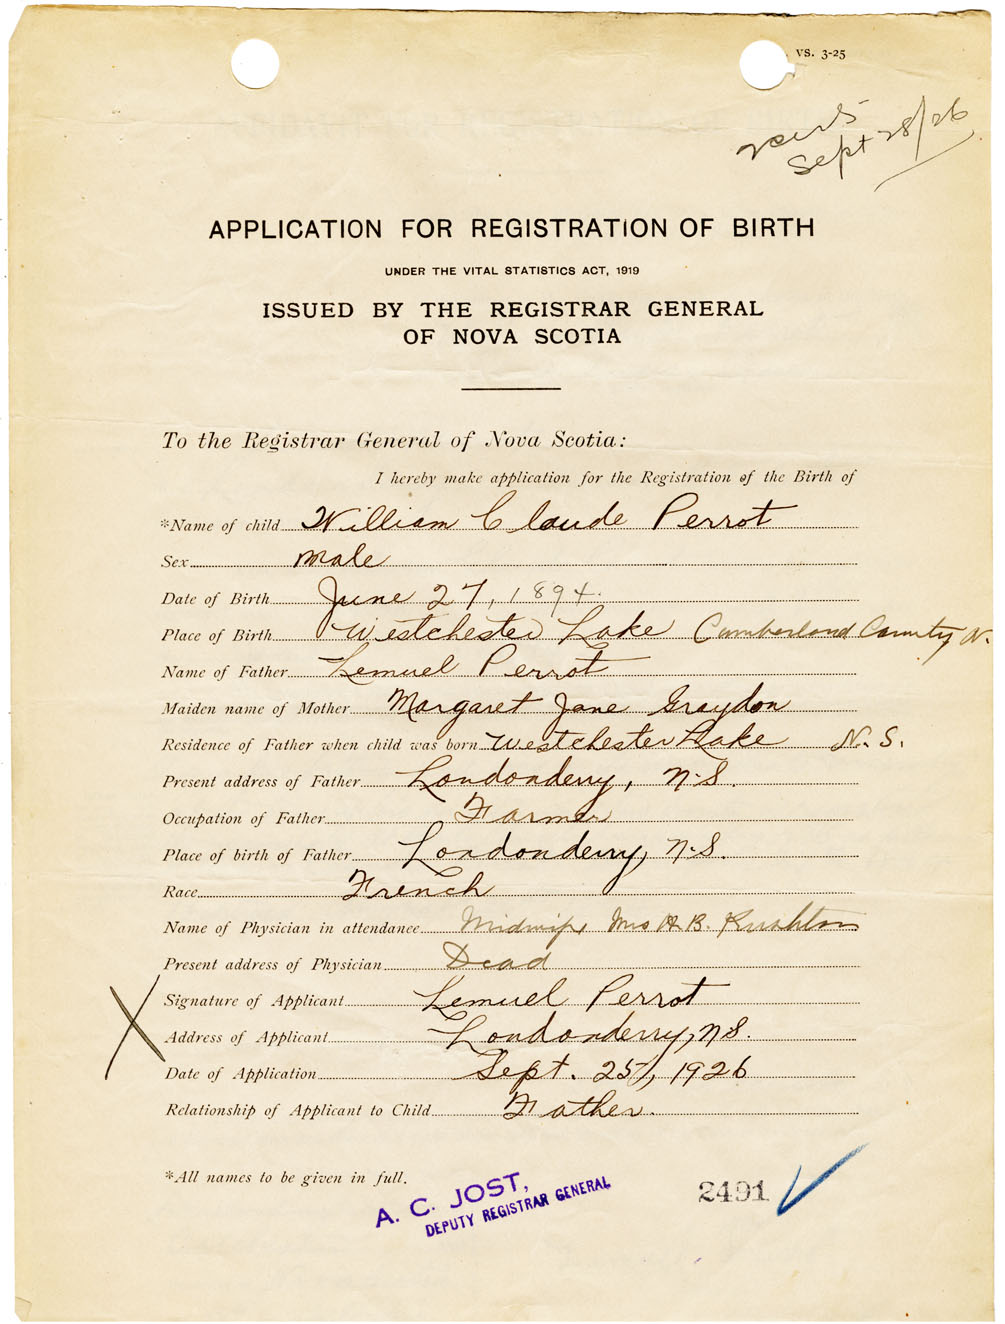 VS. 3-25
Sept 28/26
APPLICATION FOR REGISTRATION OF BIRTH
UNDER THE VITAL STATISTICS ACT, 1919
ISSUED BY THE REGISTRAR GENERAL
OF NOVA SCOTIA
To the Registrar General of Nova Scotia:
I hereby make application for the Registration of the Birth of
*Name of child William Claude Perrot
Sex Male
Date of Birth June 27, 1894.
Place of Birth Westchester Lake Cumberland County N.
Name of Father Lemuel Perrot
Maiden name of Mother Margaret Jane Graydon
Residence of Father when child was born Westchester Lake N. S.
Present address of Father Londonderry, N.S.
Occupation of Father Farmer
Place of birth of Father Londonderry, N.S.
Race French
Name of Physician in attendance Midwife Mrs H. B. Rushton
Present address of Physician Dead
Signature of Applicant Lemuel Perrot
Address of Applicant Londonderry, N.S.
Date of Application Sept. 25, 1926
Relationship of Applicant to Child Father.
*All names to be given in full.
A. C. JOST,
DEPUTY REGISTRAR GENERAL
2491